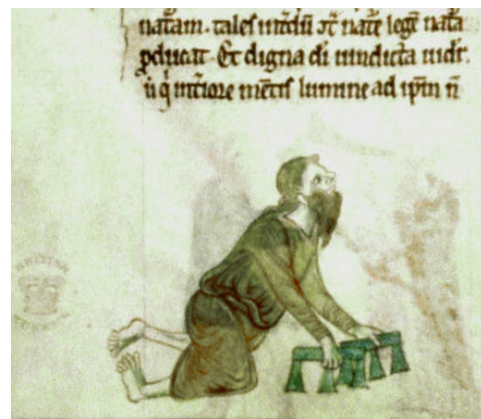 nat̃am. tales int̃dũ ↄt̃ nat̃e legẽ nat̃a
ꝓducat. Et digna dı̃ uindicta uidr̃.
ut qͥ int̃iore mẽtis lumine ad ip̃m ñ